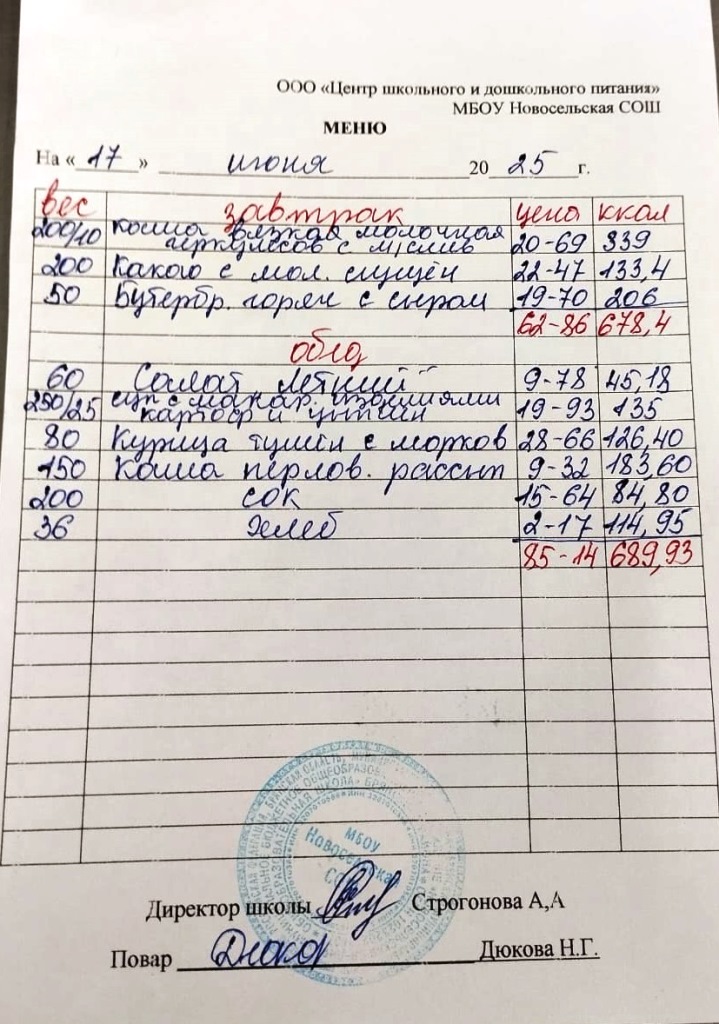 ООО «Центр школьного и дошкольного питания»
МБОУ Новосельская СОШ
МЕНЮ
На « 17 » июня 20 25 г.
вес завтрак цена ккал
200/10 каша вязкая молочная
геркулесов с м/слив 20-69 339
200 Какао с мол. сгущён 22-47 133,4
50 Бутербр. горяч с сыром 19-70 206
62-86 678,4
обед
60 Салат Летний 9-78 45,18
250/25 суп с макар. изделиями
картоф и цыплён 19-93 135
80 Курица тушён с морков 28-66 126,40
150 Каша перлов. рассып 9-32 183,60
200 сок 15-64 84,80
36 хлеб 2-17 114,95
85-14 689,93
МБОУ
Новосельская
Директор школы Строгонова А,А
Повар Дюкова Н.Г.